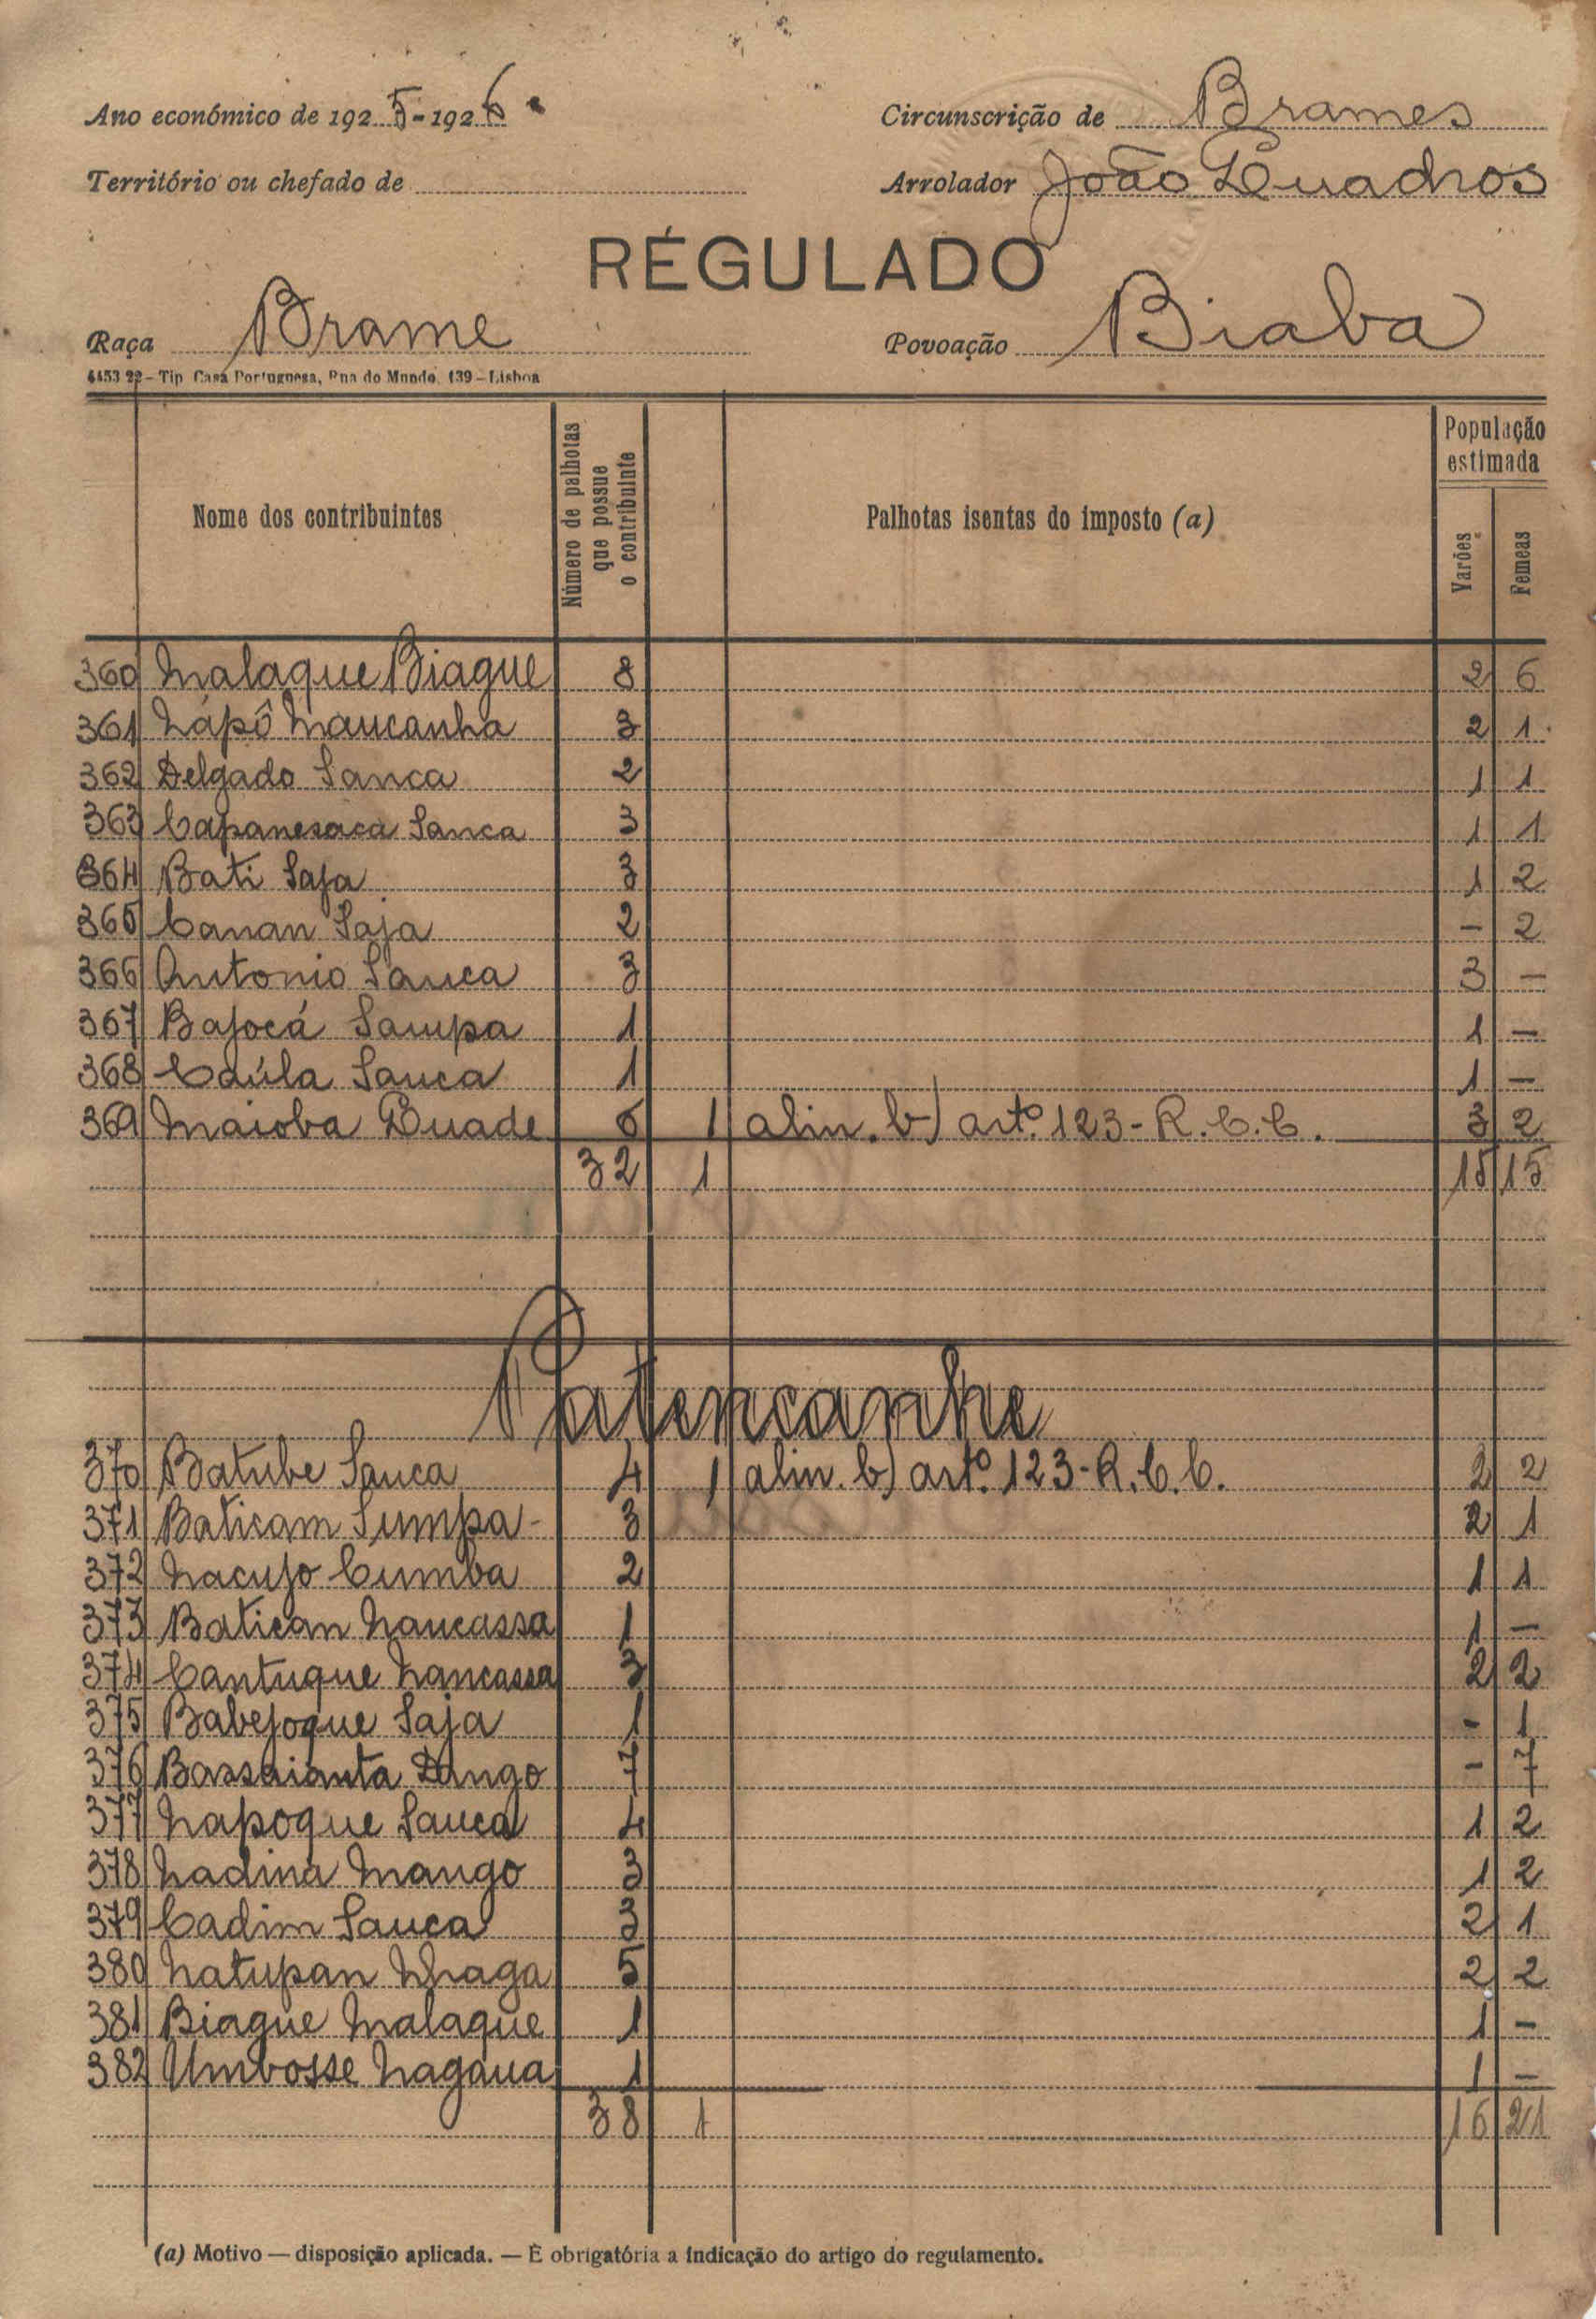 Ano económico de 1925-1926 Circunscrição de Brames
Território ou chefado de Arrolador João Quadros
RÉGULADO
Raça Brame Povoação Biaba
4453 22 – Tip. Casa Portuguesa, Rua do Mundo, 139 – Lisboa
Nome dos contribuintes Número de palhotas que possue o contribuinte Palhotas isentas do imposto (a) População estimada Varões Femeas
360 Malaque Biague 8 2 6
361 Nápô Maucanha 3 2 1
362 Delgado Sanca 2 1 1
363 Capanesaca Sanca 3 1 1
364 Bati Saja 3 1 2
365 Canan Saja 2 - 2
366 Antonio Sanca 3 3 -
367 Bajocá Sampa 1 1 -
368 Caúla Sanca 1 1 -
369 Maioba Quade 6 1 alin. b) artº. 123 - R.C.C. 3 2
32 1 15 15
Patencanhe
370 Batube Sanca 4 1 alin. b) artº. 123 - R.C.C. 2 2
371 Baticam Sumpa - 3 2 1
372 Nacujo Cumba 2 1 1
373 Batican Nancassa 1 1 -
374 Cantuque Nancassa 3 2 2
375 Babejoque Saja 1 - 1
376 Bassaianta Dungo 7 - 7
377 Napoque Sanca 4 1 2
378 Nadina Mango 3 1 2
379 Cadim Sanca 3 2 1
380 Natupan Nhaga 5 2 2
381 Biague Malaque 1 1 -
382 Umbosse Nagaua 1 1 -
38 1 16 21
(a) Motivo — disposição aplicada. — É obrigatória a indicação do artigo do regulamento.